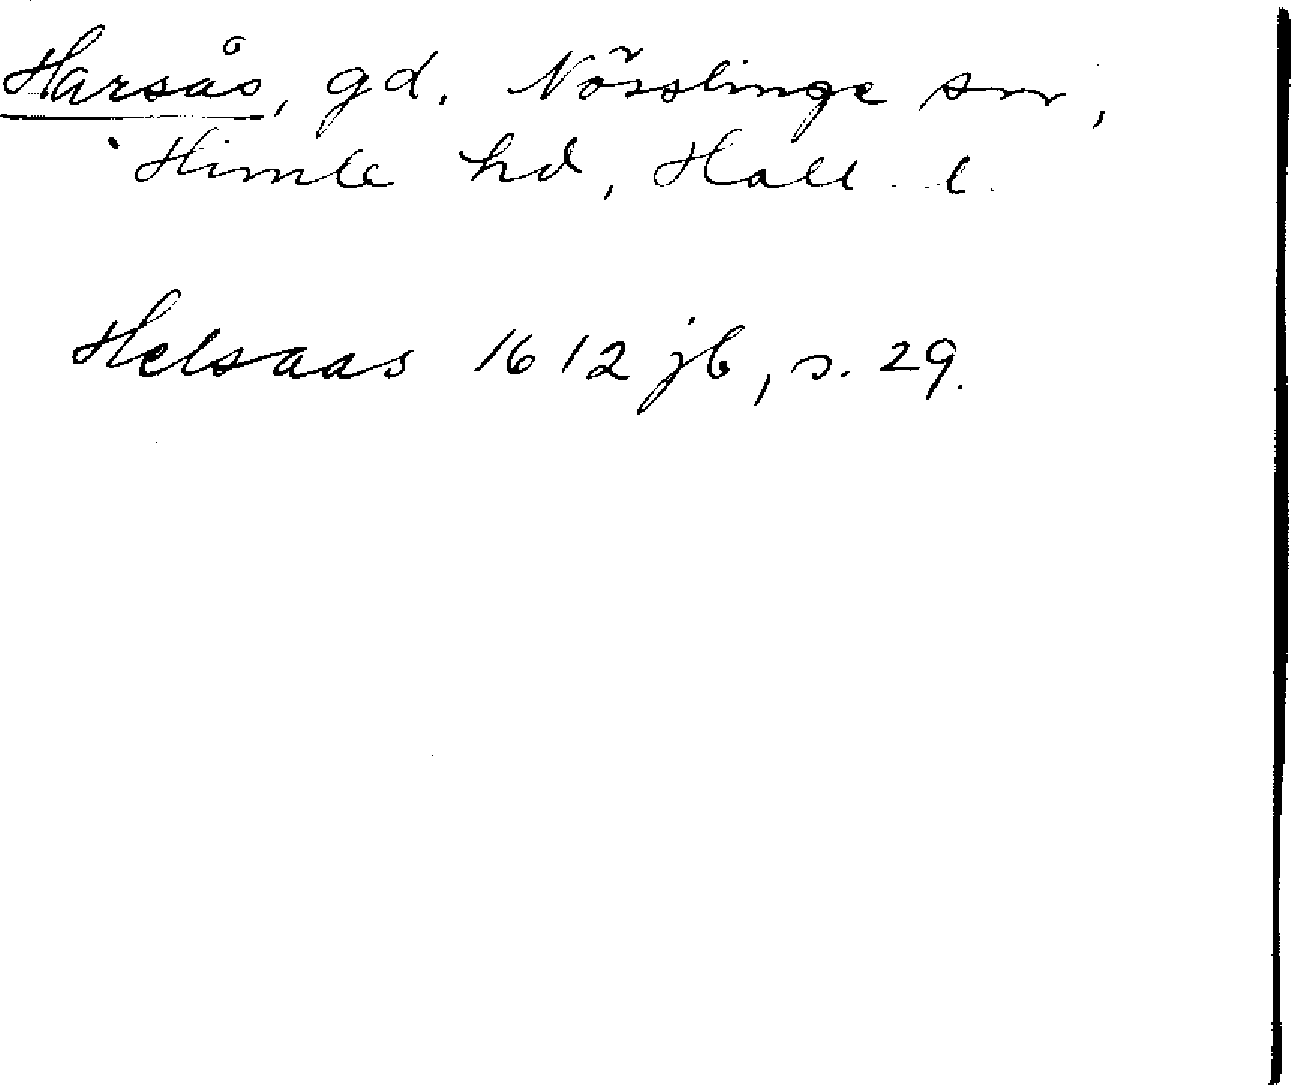 Harsås, gd. Nösslinge sn,
Himle hd, Hall. l.
Helsaas 1612 jb, s. 29.